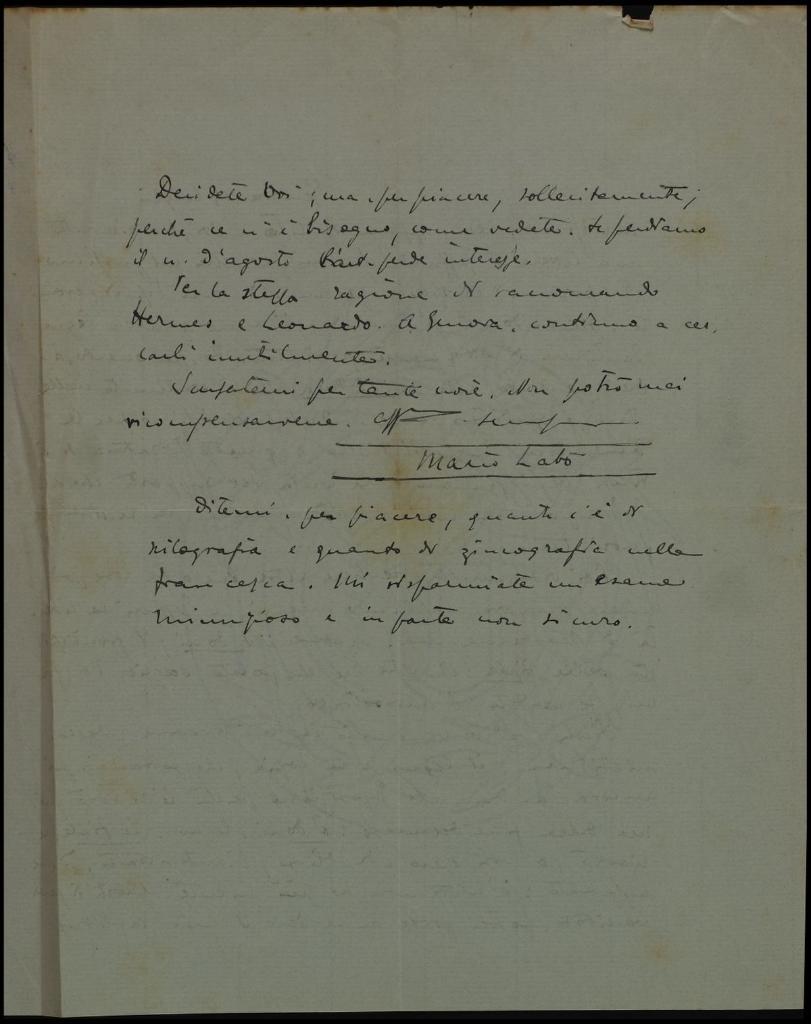 Decidete Voi; ma, per piacere, sollecitamente;
perché ce n'è bisogno, come vedete. Se perdiamo
il n. d'agosto l'art. perde interesse.
Per la stessa ragione Vi raccomando
Hermes e Leonardo. A Genova, continuo a cer-
carli inutilmente.
Scusatemi per tante noie. Non potrò mai
ricompensarvene. aff
Mario Labò
Ditemi, per piacere, quanto c'è di
xilografia e quanto di zincografia nella
Francesca. Mi risparmiate un esame
minuzioso e in parte non sicuro.